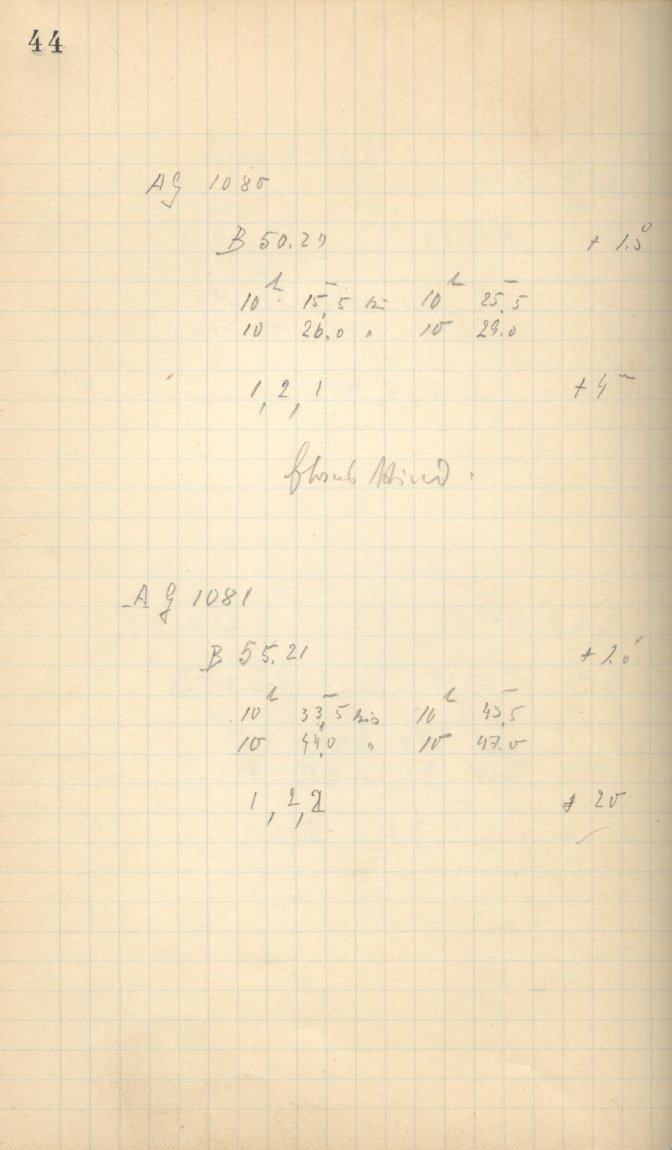 44
AG 1080
B 50.29 + 1.5°
10h 15,5 bis 10h 25,5
10 26.0 " 10 29.0
1, 2, 1 + 4m
Wind.
AG 1081
B 55.21 + 2.0°
10h 33,5 bis 10h 43,5
10 44,0 " 10 47.0
1, 2, 2 + 20